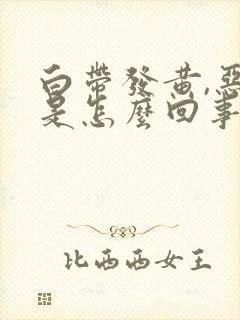 白帶發黃,惡
是怎麼回事
比西西女王